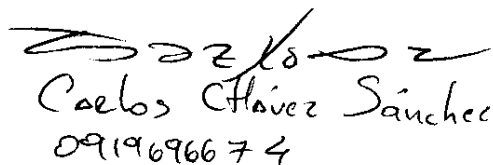 Carlos Chávez Sánchez
0919696674